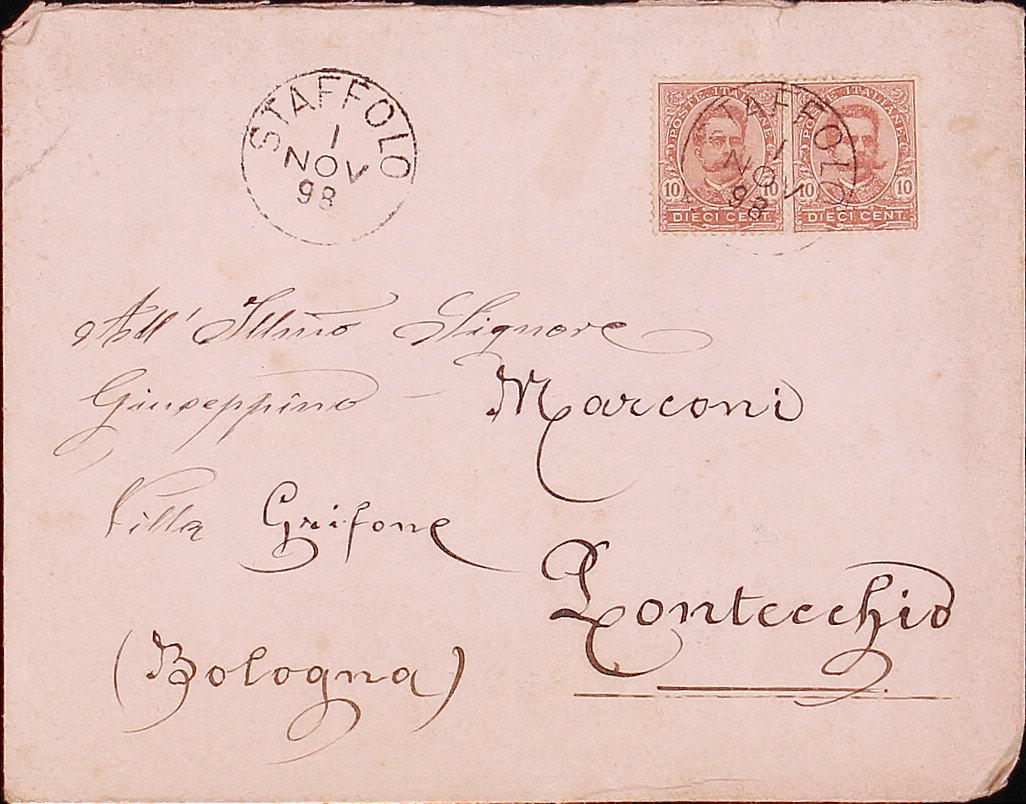 STAFFOLO
1
NOV
98
POSTE ITALIANE
10 10
DIECI CENT.
POSTE ITALIANE
10 10
DIECI CENT.
STAFFOLO
1
NOV
98
All' Illmo Signore
Giuseppino - Marconi
Villa Grifone
Pontecchio
(Bologna)